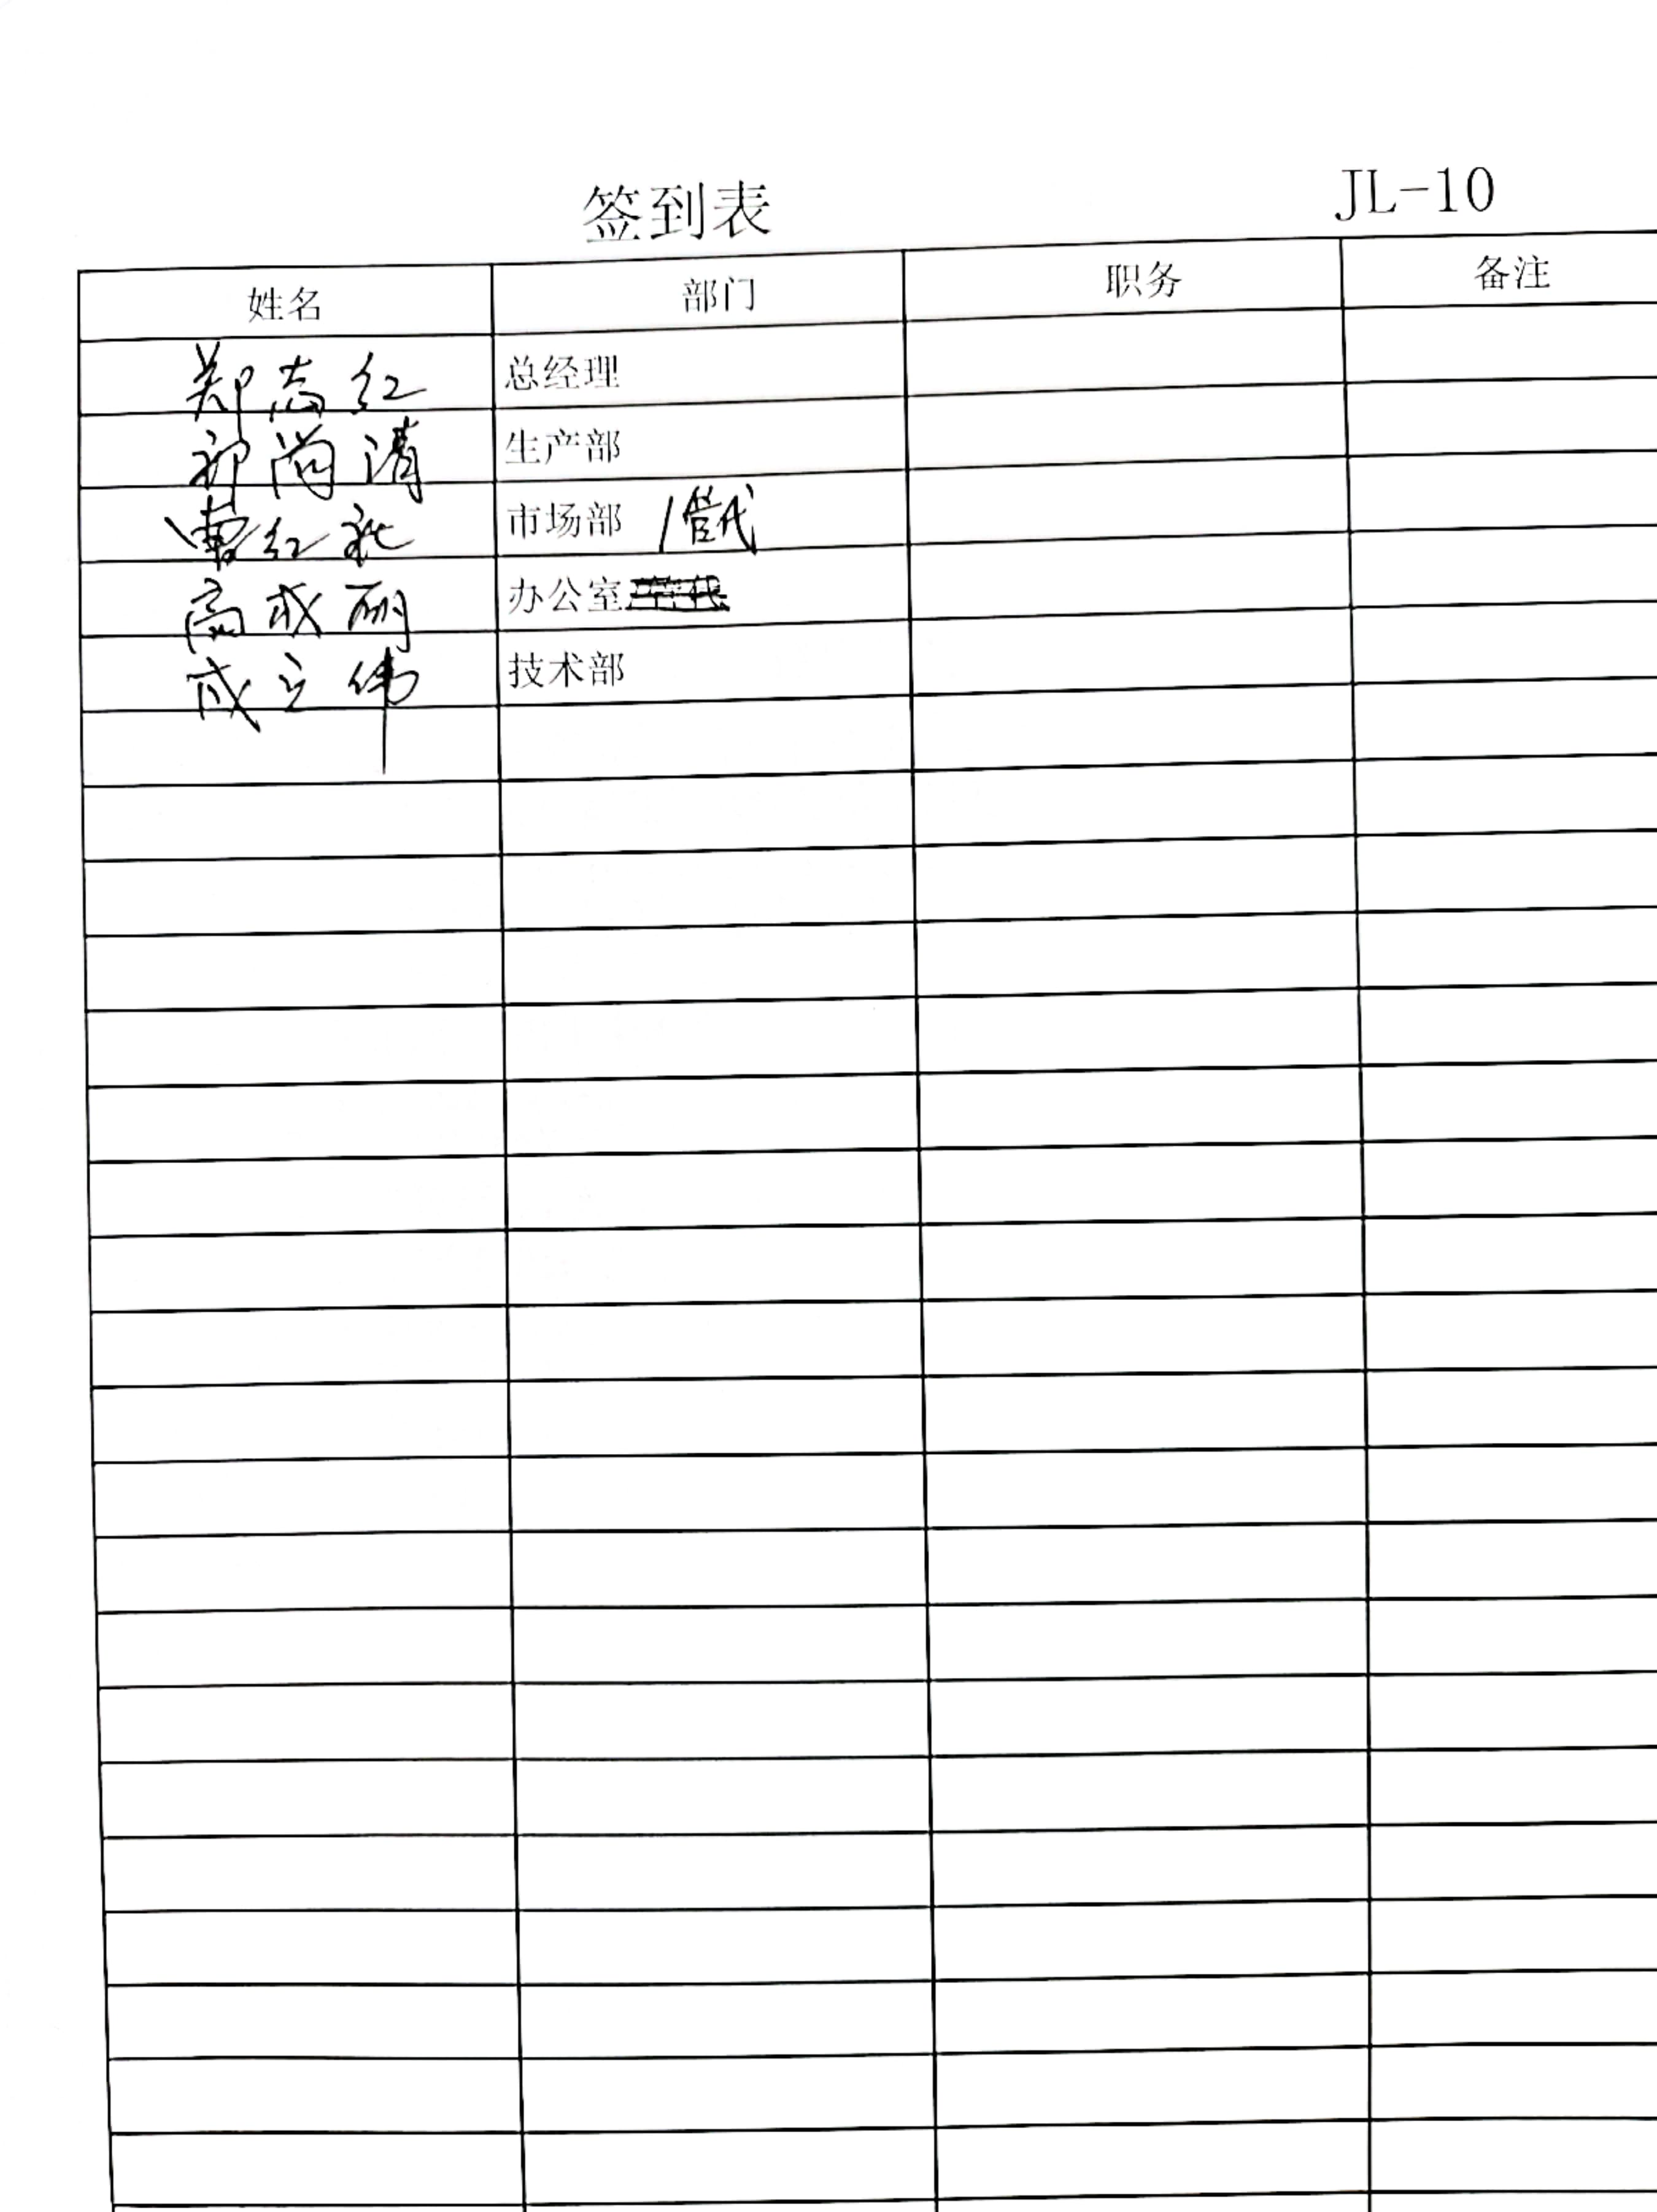 签到表 JL-10
姓名 部门 职务 备注
郑志红 总经理
祁尚清 生产部
曹红 市场部 /管代
高成丽 办公室
成立伟 技术部